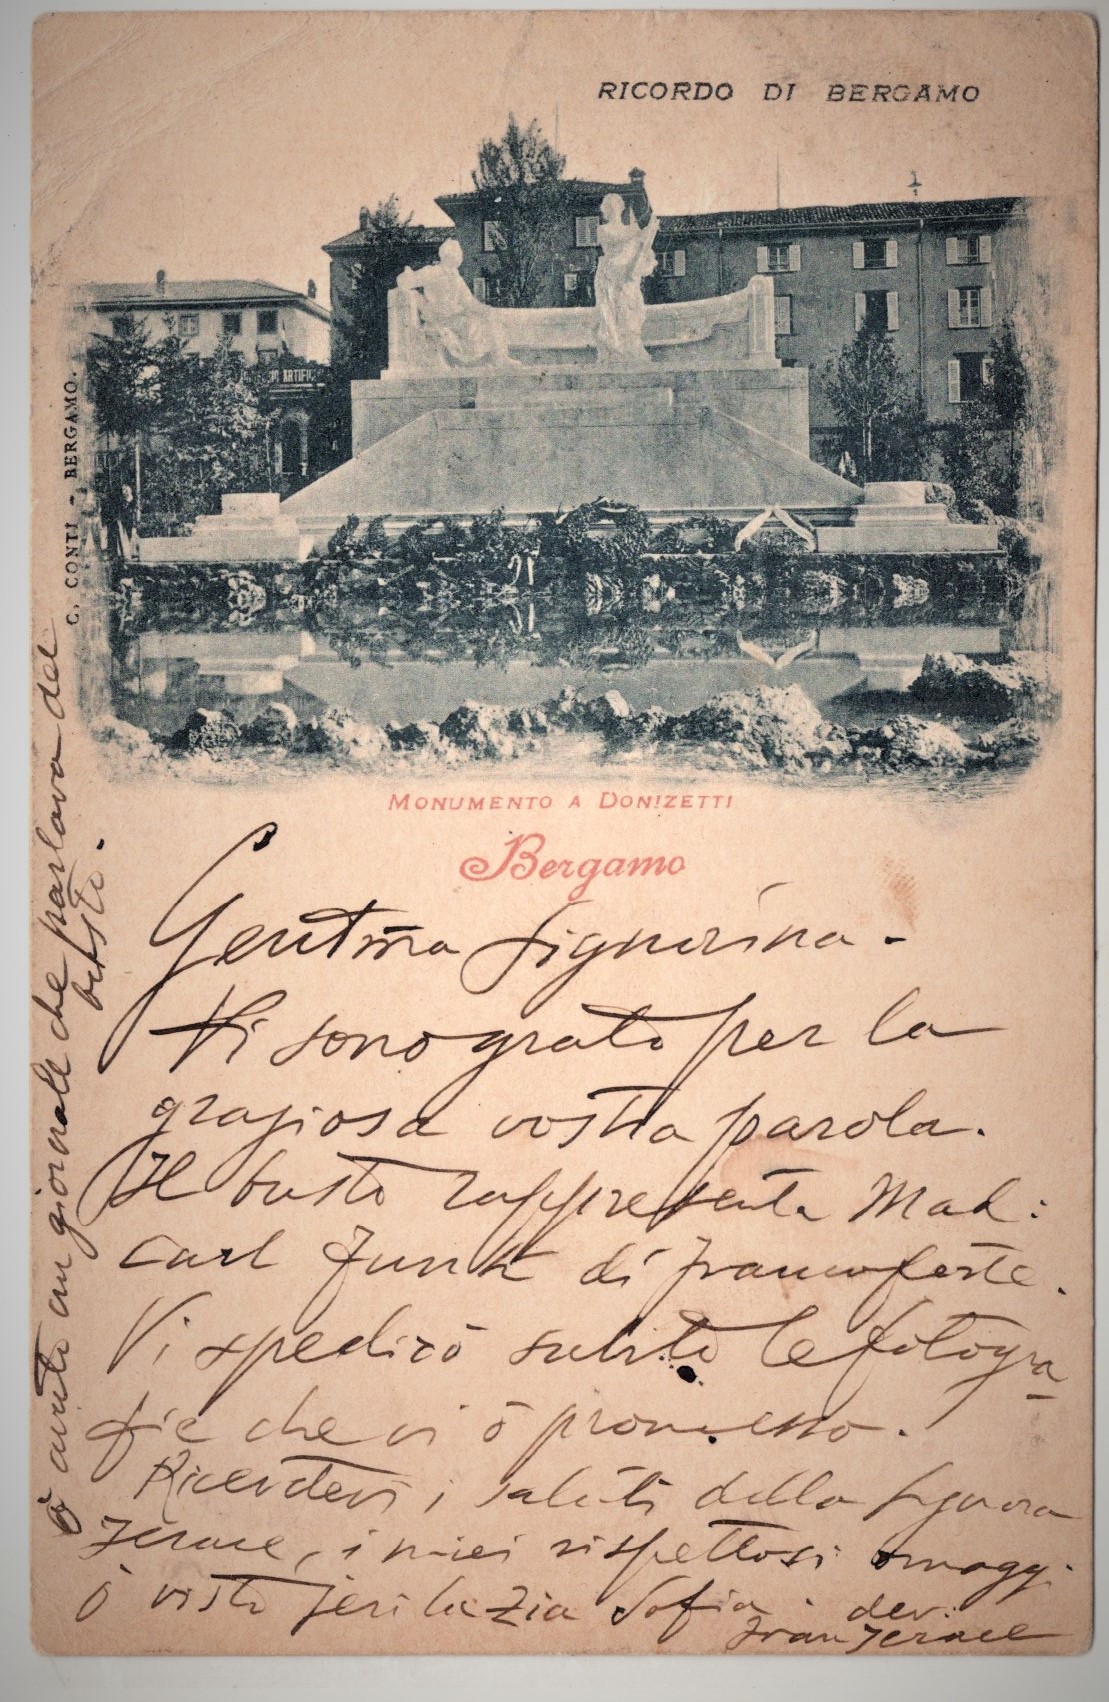 RICORDO DI BERGAMO
ARTIFI
C. CONTI - BERGAMO.
MONUMENTO A DONIZETTI
Bergamo
Gentma Signorina -
Vi sono grato per la
graziosa vostra parola.
Il busto rappresenta Mad:
Carl Junk di Francoforte.
Vi spedirò subito le fotogra-
fie che vi ò promesso.
Ricevetevi i saluti della Signora
Jerace, i miei rispettosi omaggi.
ò visto jeri la Zia Sofia. dev:
Fran Jerace
ò avuto un giornale che parlava del
busto.